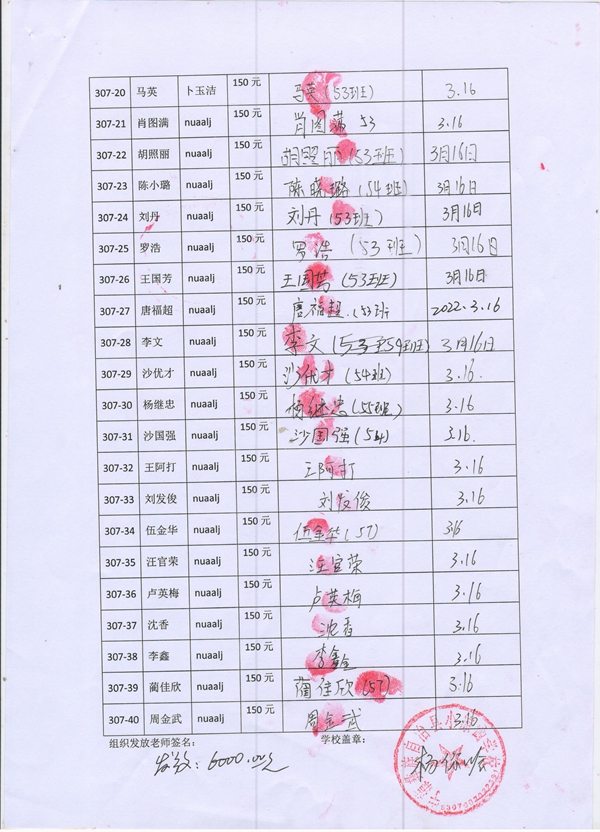 307-20 马英 卜玉洁 150 元 马英(53班) 3.16
307-21 肖图满 nuaalj 150 元 肖图满 53 3.16
307-22 胡照丽 nuaalj 150 元 胡照丽(53班) 3月16日
307-23 陈小璐 nuaalj 150 元 陈晓璐(54班) 3月16日
307-24 刘丹 nuaalj 150 元 刘丹(53班) 3月16日
307-25 罗浩 nuaalj 150 元 罗浩(53班) 3月16日
307-26 王国芳 nuaalj 150 元 王国芳(53班) 3月16日
307-27 唐福超 nuaalj 150 元 唐福超(53班 2022.3.16
307-28 李文 nuaalj 150 元 李文 3月16日
307-29 沙优才 nuaalj 150 元 沙优才(54班) 3.16.
307-30 杨继忠 nuaalj 150 元 杨继忠(55班) 3.16
307-31 沙国强 nuaalj 150 元 沙国强(54) 3.16.
307-32 王阿打 nuaalj 150 元 王阿打 3.16
307-33 刘发俊 nuaalj 150 元 刘发俊 3.16
307-34 伍金华 nuaalj 150 元 伍金华(57) 3.16
307-35 汪官荣 nuaalj 150 元 汪官荣 3.16
307-36 卢英梅 nuaalj 150 元 卢英梅 3.16
307-37 沈香 nuaalj 150 元 沈香 3.16
307-38 李鑫 nuaalj 150 元 李鑫 3.16
307-39 蔺佳欣 nuaalj 150 元 蔺佳欣(57) 3.16
307-40 周金武 nuaalj 150 元 周金武 3.16
组织发放老师签名: 学校盖章:
6000.00元